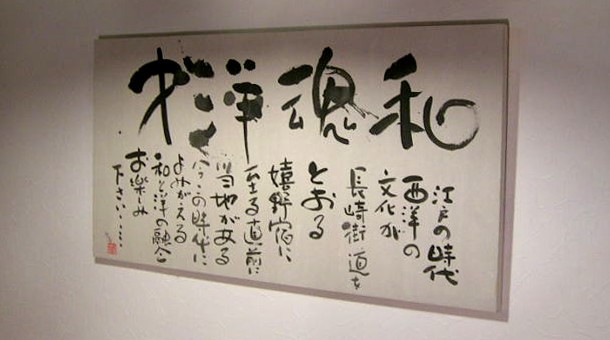 和魂洋才
江戸の時代
西洋の
文化が
長崎街道を
とおる
嬉野宿に
至る直前に
当地がある
今この時代に
よみがえる
和と洋の融合
お楽しみ
下さい……